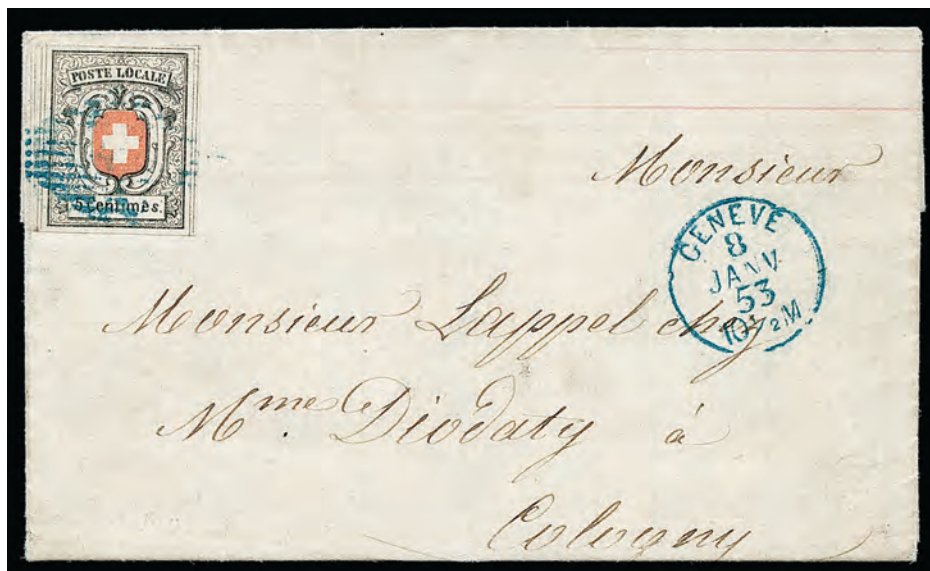 POSTE LOCALE
5 Centimes.
Monsieur
GENÈVE
8
JANV
53
10 1/2 M
Monsieur Lappel chez
Mme. Diodaty à
Cologny